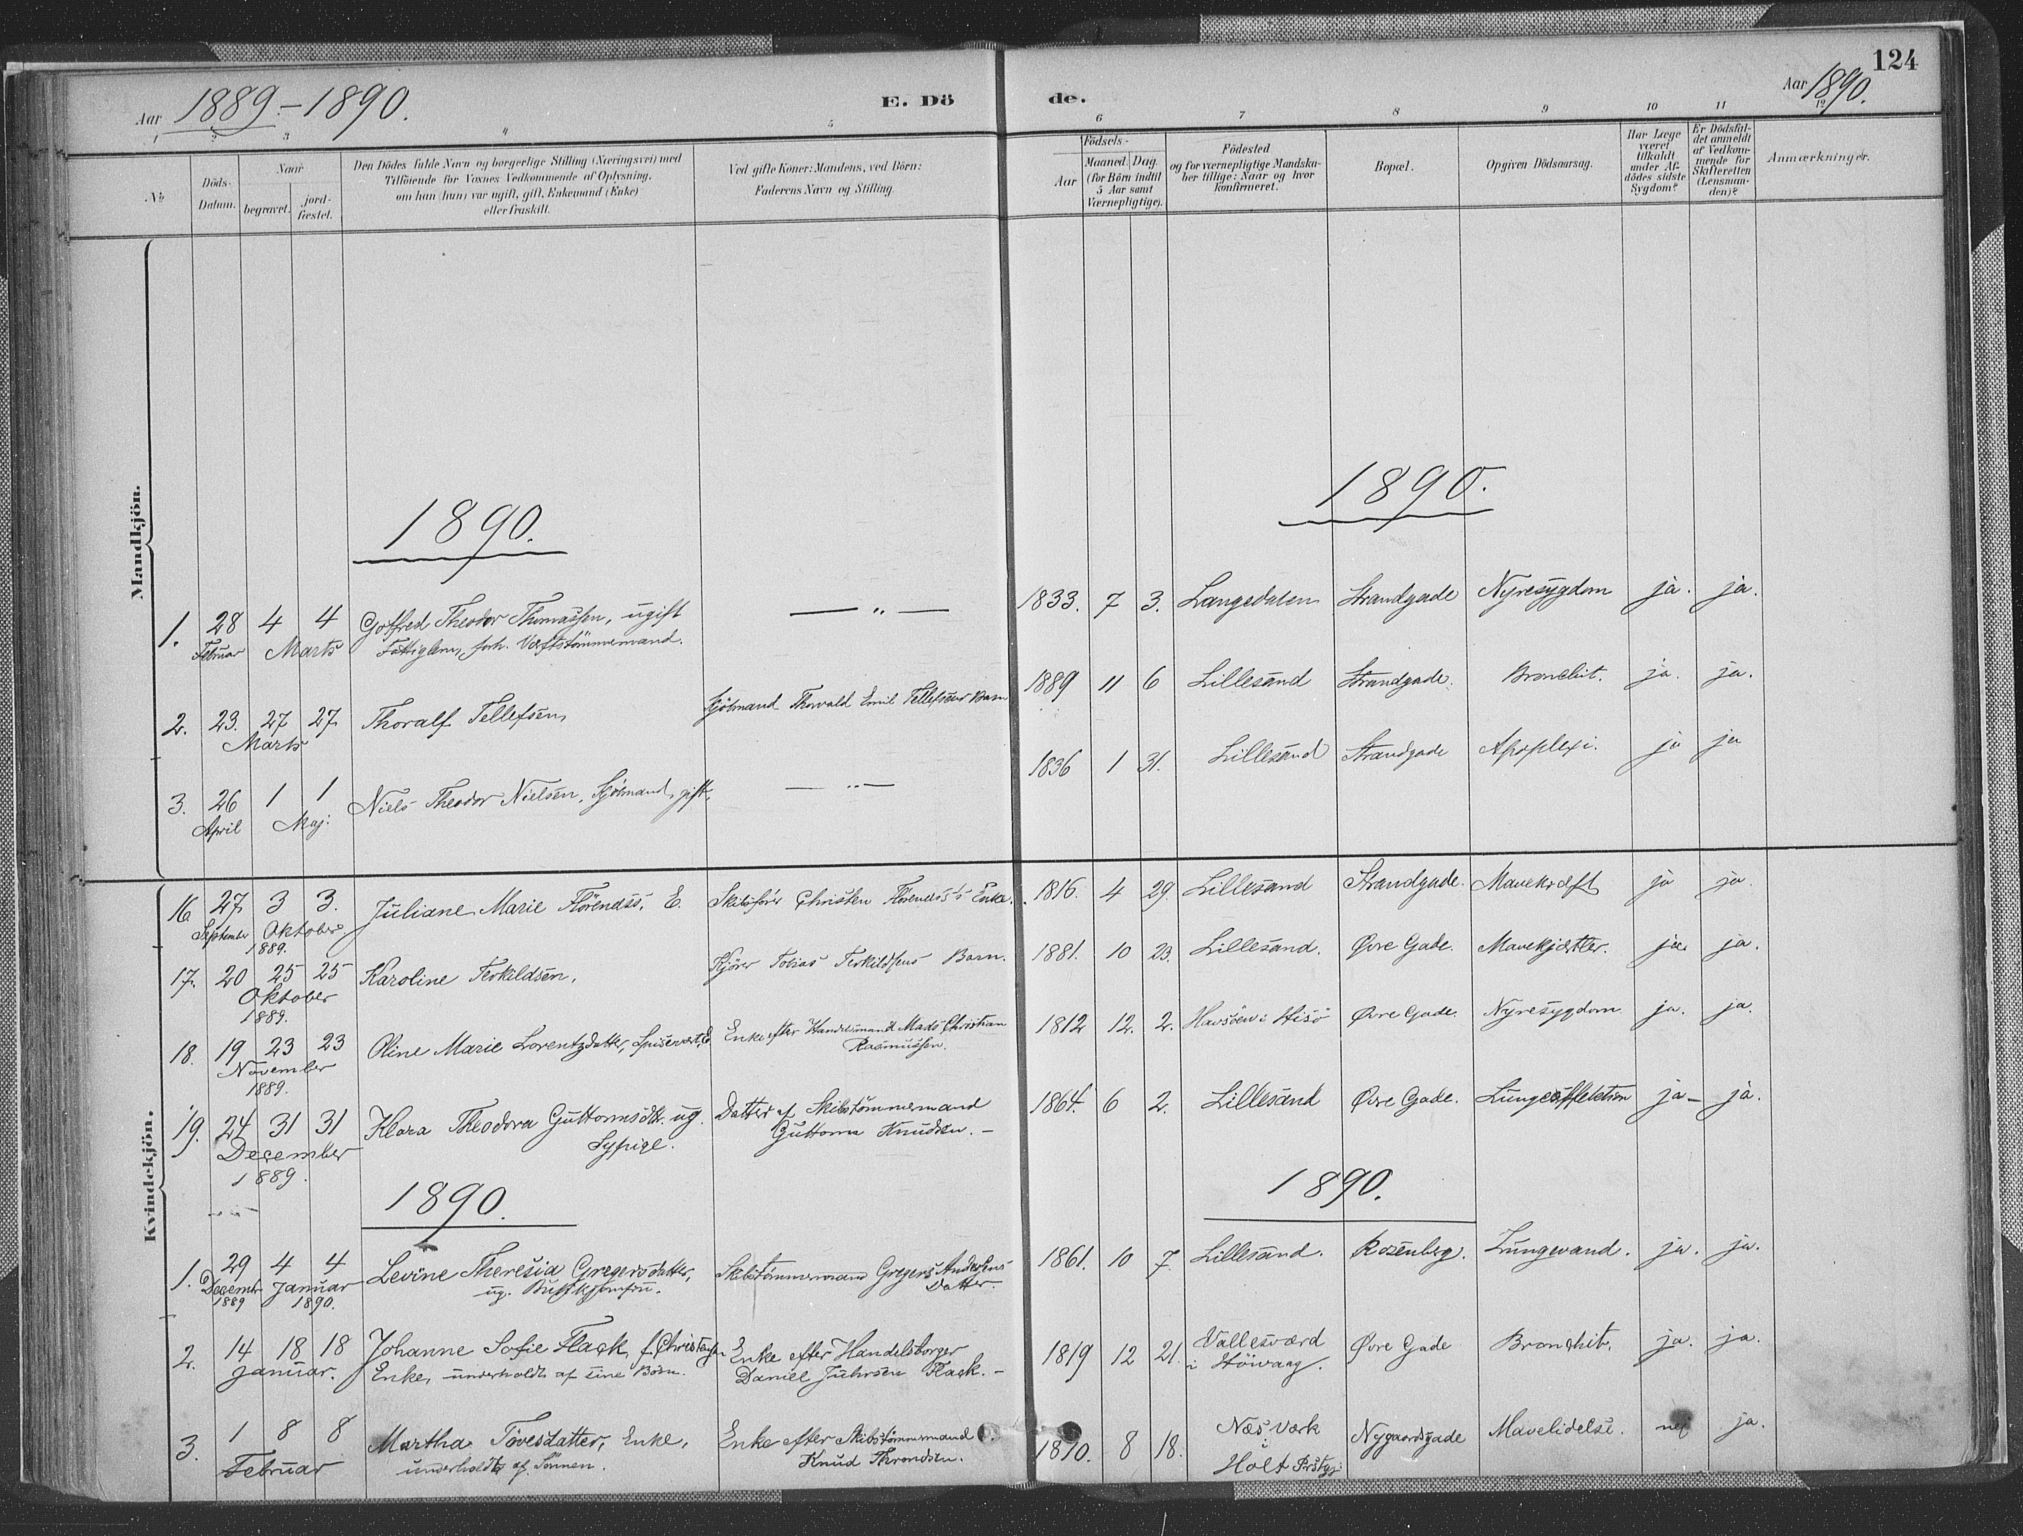 124
Aar 1889-1890.
E. Dö
de.
Aar 1890.
1 2 3 4 5 6 7 8 9 10 11 12
No
Döds-Datum.
Naar
begravet.
jord-fæstet.
Den Dödes fulde Navn og borgerlige Stilling (Næringsvei) med
Tilföiende for Voxnes Vedkommende af Oplysning,
om han (hun) var ugift, gift, Enkemand (Enke)
eller fraskilt.
Ved gifte Koner: Mandens, ved Börn:
Faderens Navn og Stilling.
Födsels-
Aar
Maaned. Dag.
(for Börn indtil
5 Aar samt
Værnepligtige).
Födested
og for værnepligtige Mandska-
ber tillige: Naar og hvor
konfirmeret.
Bopæl.
Opgiven Dödsaarsag.
Har Læge
været
tilkaldt
under Af-
dödes sidste
Sygdom?
Er Dödsfal-
det anmeldt
af Vedkom-
mende for
Skifteretten
(Lensman-
den)?
Anmærkninger.
Mandkjön.
1890.
1890.
1. 28 4 4 Gotfred Theodor Thomassen, ugift — " — 1833. 7 3. Langedalen Strandgade Nyresygdom ja. ja.
Februar Marts Fattiglem, forh. Værftstömmermand.
2. 23. 27 27 Thoralf Tellefsen, Sjömand Thorvald Emil Tellefsens Barn 1889 11 6 Lillesand Strandgade. Bronchit. ja. ja.
Marts
3. 26 1 1 Niels Theodor Nielsen, Sjömand, gift, — " — 1836 1 31. Lillesand Strandgade Apoplexi. ja ja
April Maj.
Kvindekjön.
16 27 3 3. Juliane Marie Flörenæss, E. Skibsförer Christen Flörenæss's Enke. 1816. 4 29. Lillesand Strandgade. Mavekræft ja ja.
September Oktober
1889.
17. 20 25 25 Karoline Terkildsen, Kjörer Tobias Terkildsens Barn. 1881. 10 23. Lillesand. Øvre Gade. Mavekjertler. ja. ja.
Oktober
1889.
18. 19 23 23 Oline Marie Lorentzdatter, Spisevært, E. Enke efter Handelsmand Mads Christian 1812 12. 2. Havsöen i Hisö Øvre Gade. Nyresygdom ja. ja.
November Rasmussen.
1889.
19. 24 31 31 Klara Theodora Guttormsdtr. ug. Datter af Skibstömmermand 1864. 6 2. Lillesand Øvre Gade. Lungeaffektion ja- ja.
December Sypige. Guttorm Knudsen. -
1889.
1890.
1890.
1. 29 4 4 Levine Theresia Gregersdatter, Skibstömmermand Gregers Andersens 1861. 10 7 Lillesand. Rosenberg. Lungevand. ja. ja.
December Januar ug. Datter.
1889 1890.
2. 14 18 18 Johanne Sofie Flack, f. Christensen Enke efter Handelsborger 1819 12 21. Vallesværd Øvre Gade Bronchit. ja. ja.
Januar. Enke, underholdt af sine Börn. Daniel Juhrsen Flack. - i Höivaag.
3. 1 8 8 Martha Tovesdatter, Enke, Enke efter Skibstömmermand 1810. 8 18. Næs Værk Nygaardsgade Mavelidelse. nej ja.
Februar underholdt af Sönnen. Knud Throndsen. i
Holt Prstgj.